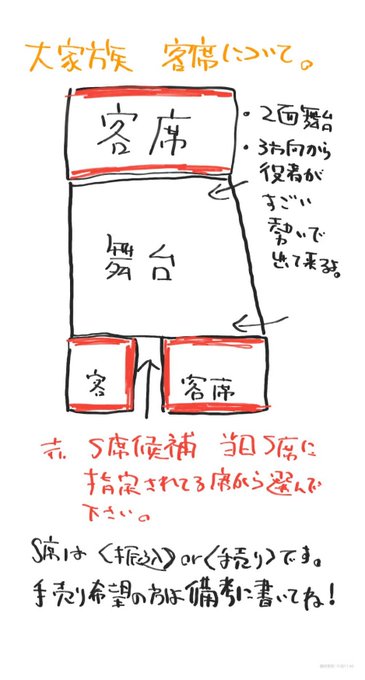 大家族 客席について。
客席
・2面舞台
・3方向から
役者が
すごい
勢いで
出て来るよ。
舞台
客
客席
赤 S席候補 当日S席に
指定されてる席から選んで
下さい。
S席は〈振込〉or〈手売り〉です。
手売り希望の方は備考に書いてね!